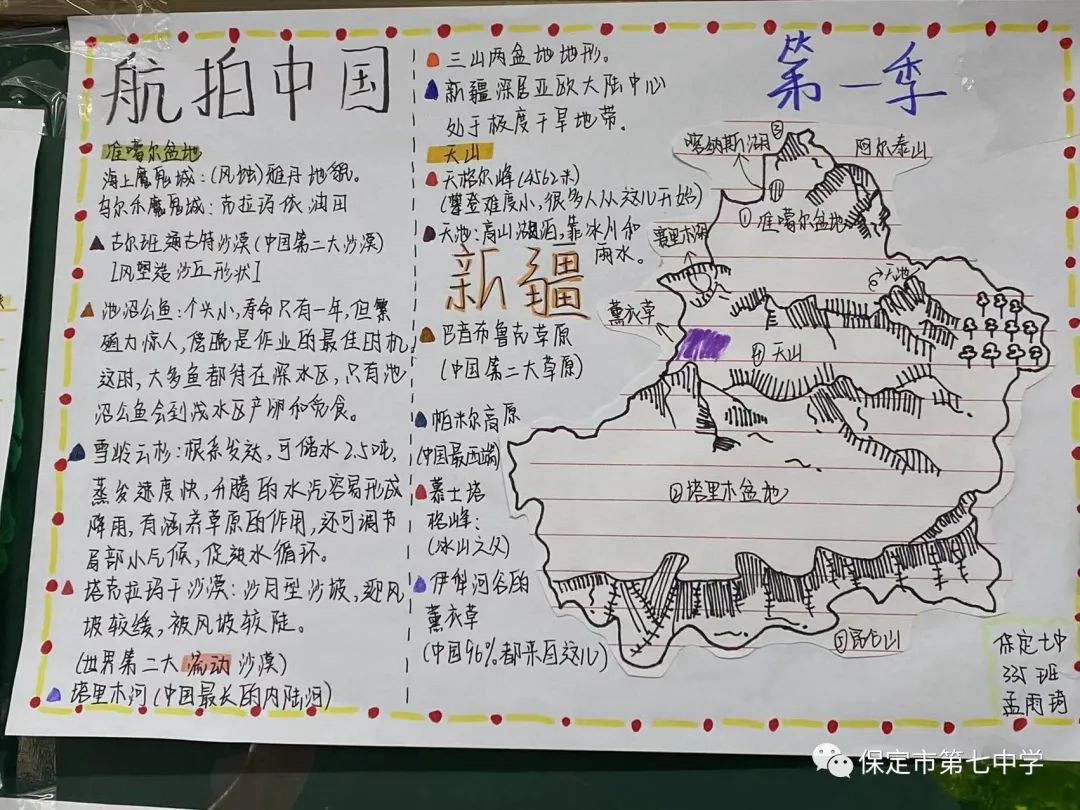 航拍中国
准噶尔盆地
海上魔鬼城:(风蚀)雅丹地貌。
乌尔禾魔鬼城:克拉玛依油田
古尔班通古特沙漠(中国第二大沙漠)
[风塑造沙丘形状]
池沼公鱼:个头小,寿命只有一年,但繁
殖力惊人,傍晚是作业的最佳时机,
这时,大多鱼都待在深水区,只有池
沼公鱼会到浅水区产卵和觅食。
雪岭云杉:根系发达,可储水2.5吨,
蒸发速度快,升腾的水汽容易形成
降雨,有涵养草原的作用,还可调节
局部小气候,促进水循环。
塔克拉玛干沙漠:沙月型沙坡,迎风
坡较缓,被风坡较陡。
(世界第二大流动沙漠)
塔里木河(中国最长的内陆河)
三山两盆地地形。
新疆深居亚欧大陆中心
处于极度干旱地带。
天山
天格尔峰(4562米)
(攀登难度小,很多人从这儿开始)
天池:高山湖泊,靠冰川和
雨水。
新疆
巴音布鲁克草原
(中国第二大草原)
帕米尔高原
(中国最西端)
慕士塔
格峰:
(冰山之父)
伊犁河谷的
薰衣草
(中国96%都来自这儿)
第一季
喀纳斯湖
③
阿尔泰山
①准噶尔盆地
赛里木湖
天池
薰衣草
④天山
②塔里木盆地
⑤昆仑山
保定七中
335班
孟雨琦
保定市第七中学